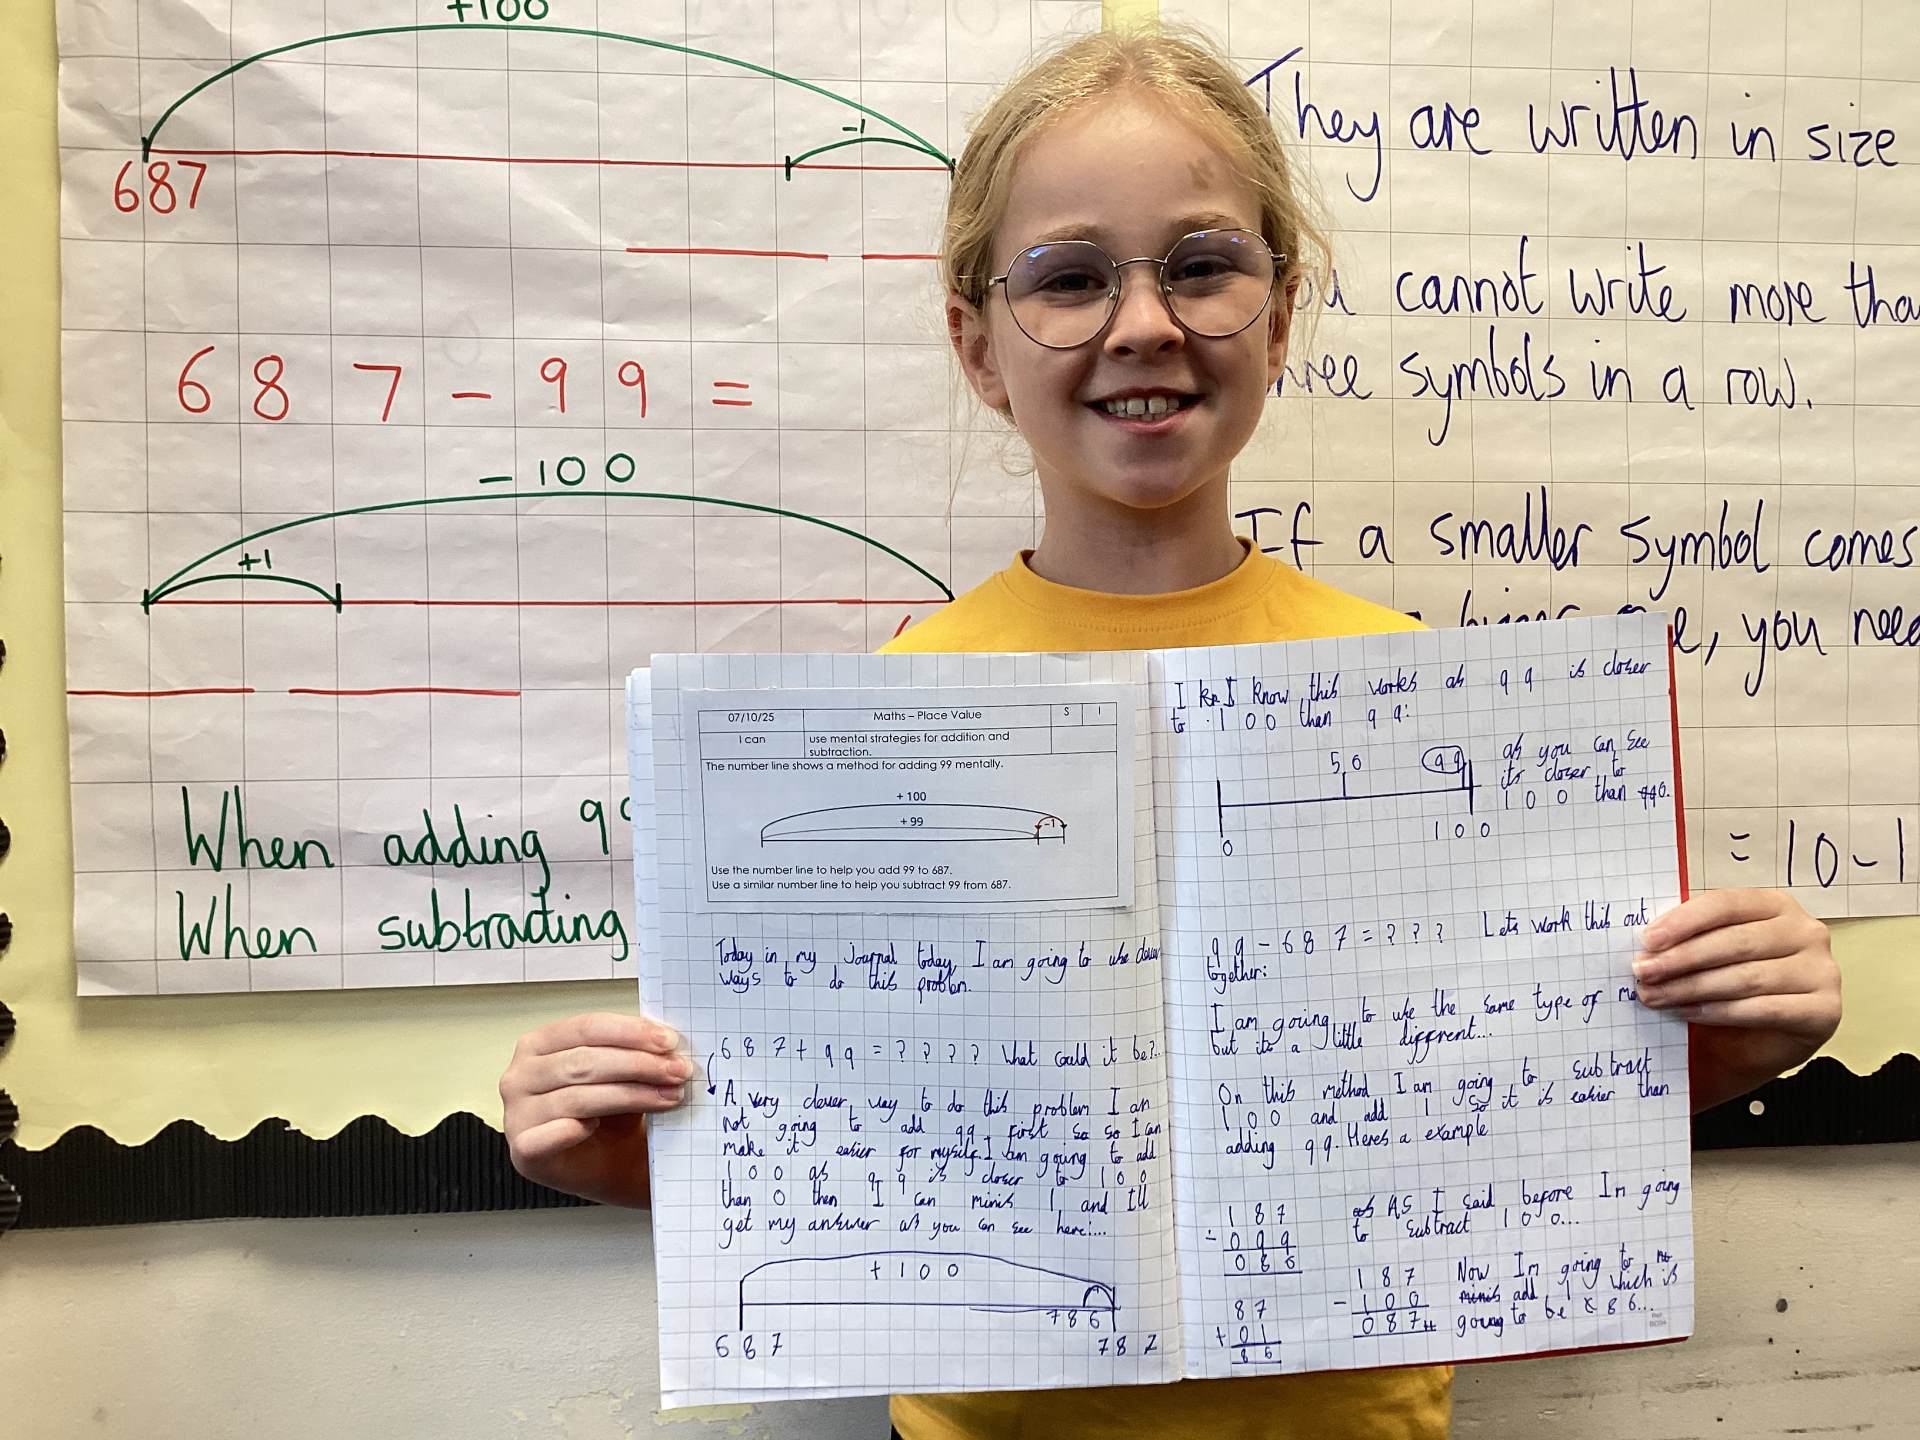 +100
-1
687
687-99=
-100
+1
When adding 9
When subtracting
They are written in size
cannot write more tha
symbols in a row.
If a smaller symbol comes
you need
= 10-1
07/10/25 Maths – Place Value S I
I can use mental strategies for addition and
subtraction.
The number line shows a method for adding 99 mentally.
+ 100
+ 99
-1
Use the number line to help you add 99 to 687.
Use a similar number line to help you subtract 99 from 687.
Today in my Journal today, I am going to use clever
ways to do this problem.
687+99=???? What could it be?..
A very clever way to do this problem I am
not going to add 99 first so so I can
make it easier for myself. I am going to add
100 as 99 is closer to 100
than 0 then I can minis 1 and I'll
get my answer as you can see here:...
+100
786
687 787
I kn I know this works as 99 is closer
to 100 than 99:
50 99
0 100
as you can see
its closer to
100 than 0.
99-687=??? Lets work this out
together:
I am going to use the same type of
but its a little different...
On this method I am going to subtract
100 and add 1 so it is easier than
adding 99. Heres a example
187
- 099
086
as AS I said before Im going
to subtract 100...
187
- 100
087
Now Im going to
minis add 1 which is
going to be 86...
87
+ 01
86